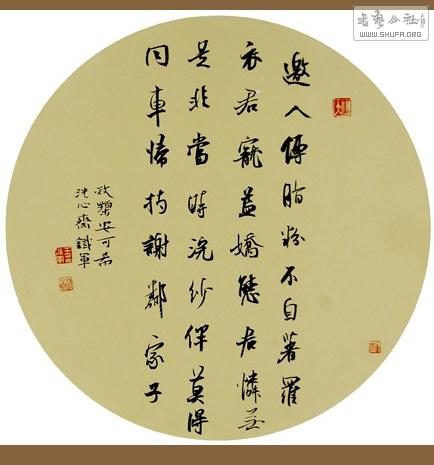 書藝公社
WWW.SHUFA.ORG
邀人傅脂粉不自著羅
衣君寵益嬌態君憐無
是非當時浣紗伴莫得
同車歸持謝鄰家子
效顰安可希
洗心齋鐵軍